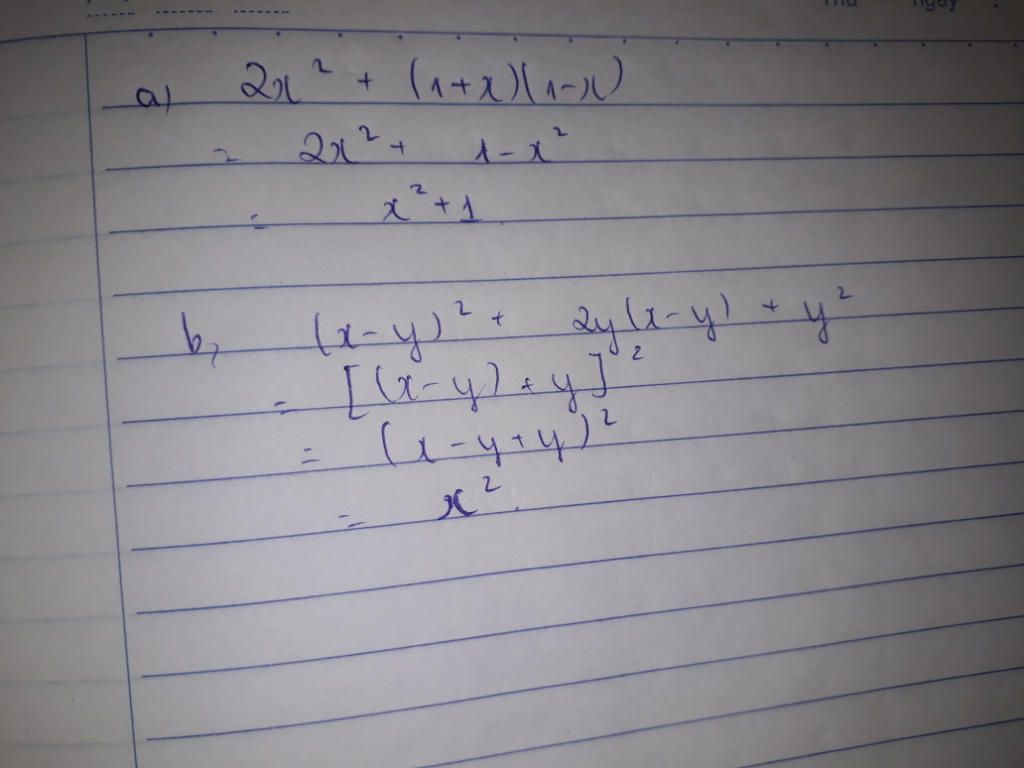 Thứ ngày
a) 2x² + (1+x)(1-x)
= 2x² + 1 - x²
= x² + 1.
b, (x-y)² + 2y(x-y) + y²
= [(x-y) + y]²
= (x - y + y)²
= x².